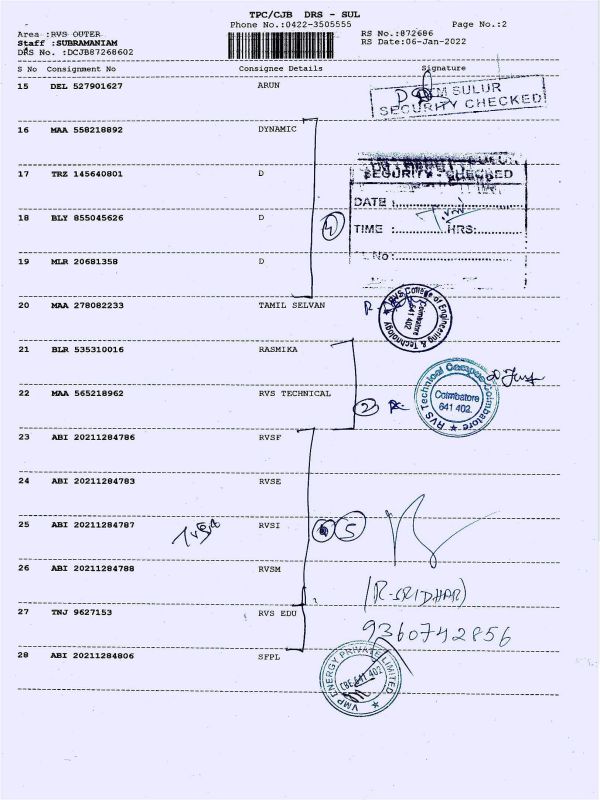 TPC/CJB DRS - SUL
Phone No.:0422-3505555 Page No.:2
Area :RVS OUTER RS No.:872686
Staff :SUBRAMANIAM RS Date:06-Jan-2022
DRS No. :DCJB87268602
S No Consignment No Consignee Details Signature
15 DEL 527901627 ARUN
SULUR
SECURITY CHECKED
16 MAA 558218892 DYNAMIC
17 TRZ 145640801 D
SECURITY CHECKED
DATE :
18 BLY 855045626 D
4
TIME : HRS:
No:
19 MLR 20681358 D
20 MAA 278082233 TAMIL SELVAN
RVS College of Engineering & Technology
Coimbatore
641 402
21 BLR 535310016 RASMIKA
22 MAA 565218962 RVS TECHNICAL
2
RVS Technical Campus-Coimbatore
Coimbatore
641 402.
23 ABI 20211284786 RVSF
24 ABI 20211284783 RVSE
25 ABI 20211284787 RVSI
5
26 ABI 20211284788 RVSM
(R-SRIDHAR)
27 TNJ 9627153 RVS EDU
9360742856
28 ABI 20211284806 SFPL
VMP ENERGY PRIVATE LIMITED
CBE 641 402